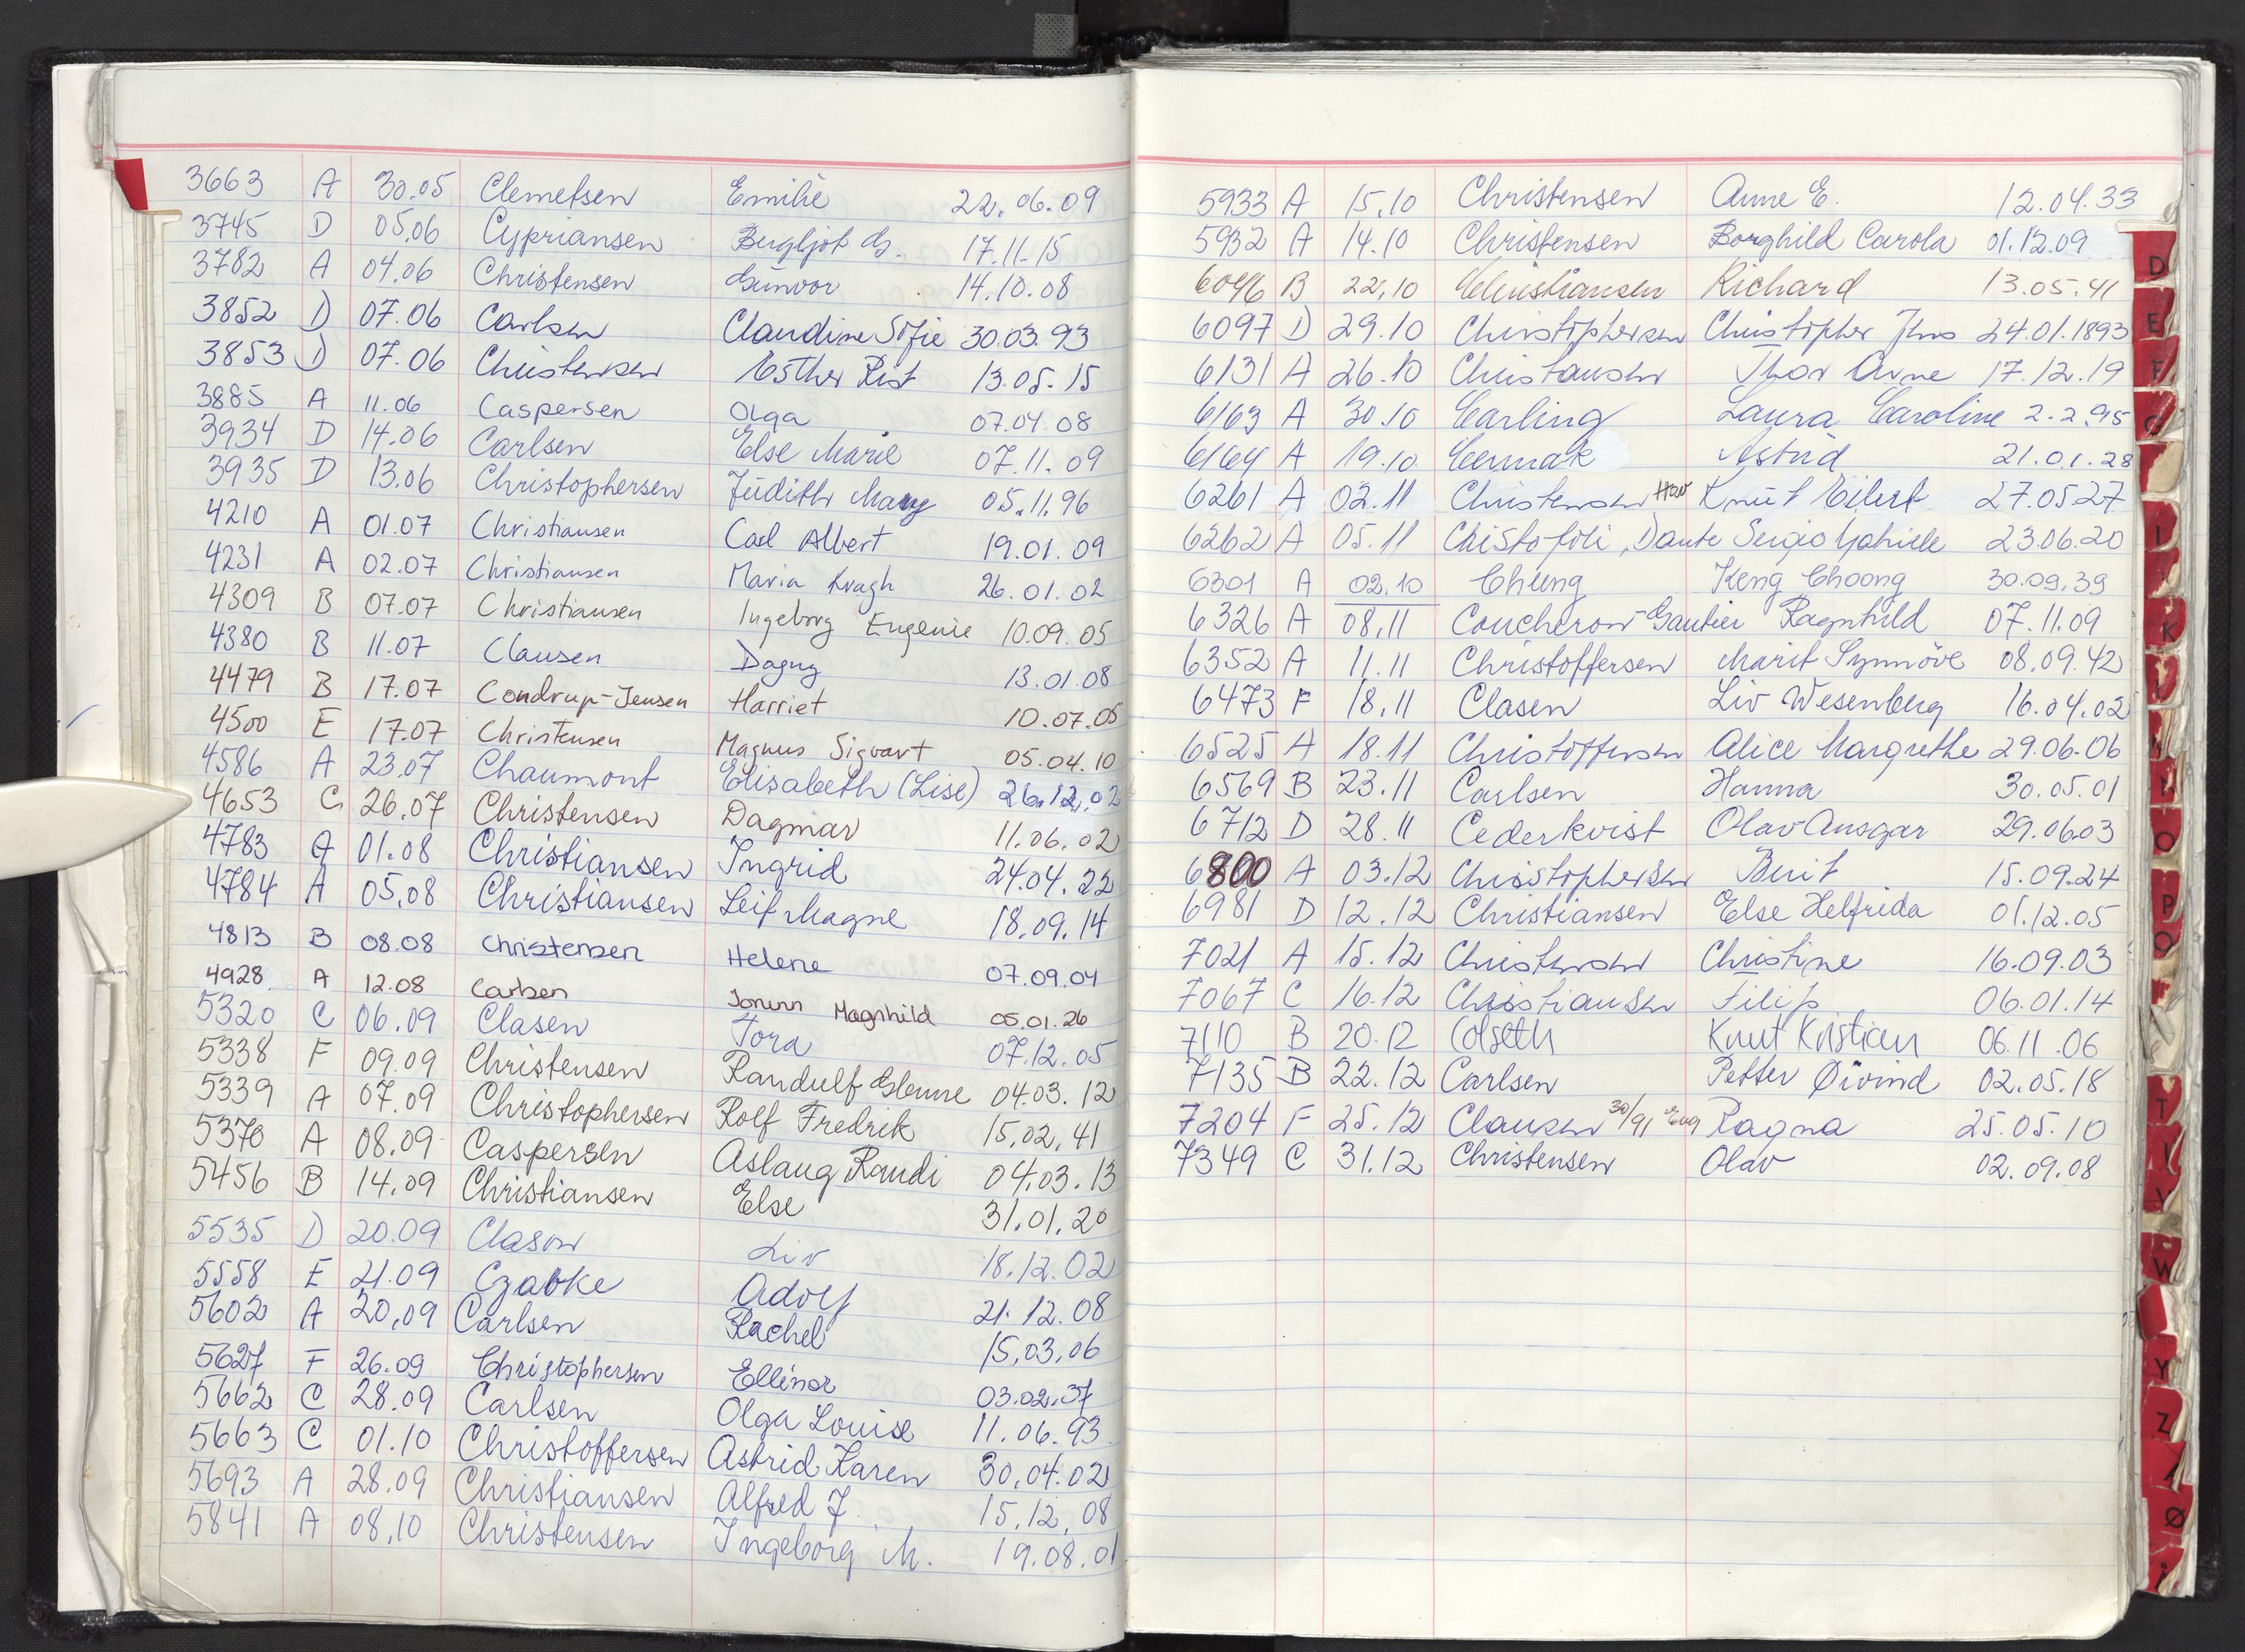 3663 A 30.05 Clemetsen Emilie 22.06.09
3745 D 05.06 Cypriansen Bergljot G. 17.11.15
3782 A 04.06 Christensen Gunvor 14.10.08
3852 D 07.06 Carlsen Claudine Sofie 30.03.93
3853 D 07.06 Christensen Esther Rist 13.05.15
3885 A 11.06 Caspersen Olga 07.04.08
3934 D 14.06 Carlsen Else Marie 07.11.09
3935 D 13.06 Christophersen Judith Mary 05.11.96
4210 A 01.07 Christiansen Carl Albert 19.01.09
4231 A 02.07 Christiansen Maria Kragh 26.01.02
4309 B 07.07 Christiansen Ingeborg Eugenie 10.09.05
4380 B 11.07 Clausen Dagny 13.01.08
4479 B 17.07 Condrup-Jensen Harriet 10.07.05
4500 E 17.07 Christensen Magnus Sigvart 05.04.10
4586 A 23.07 Chaumont Elisabeth (Lise) 26.12.02
4653 C 26.07 Christensen Dagmar 11.06.02
4783 A 01.08 Christiansen Ingrid 24.04.22
4784 A 05.08 Christiansen Leif Magne 18.09.14
4813 B 08.08 Christensen Helene 07.09.04
4928 A 12.08 Carlsen Jorunn Magnhild 05.01.26
5320 C 06.09 Clasen Tora 07.12.05
5338 F 09.09 Christensen Randulf Glenne 04.03.12
5339 A 07.09 Christophersen Rolf Fredrik 15.02.41
5370 A 08.09 Caspersen Aslaug Randi 04.03.13
5456 B 14.09 Christiansen Else 31.01.20
5535 D 20.09 Clason Liv 18.12.02
5558 E 21.09 Czabke Adolf 21.12.08
5602 A 20.09 Carlsen Rachel 15.03.06
5627 F 26.09 Christophersen Ellinor 03.02.37
5662 C 28.09 Carlsen Olga Louise 11.06.93
5663 C 01.10 Christoffersen Astrid Karen 30.04.02
5693 A 28.09 Christiansen Alfred J. 15.12.08
5841 A 08.10 Christensen Ingeborg M. 19.08.01
5933 A 15.10 Christensen Anne E. 12.04.33
5932 A 14.10 Christensen Borghild Carola 01.12.09
6046 B 22.10 Christiansen Richard 13.05.41
6097 D 29.10 Christophersen Christopher Jhs 24.01.1893
6131 A 26.10 Christansen Thor Arne 17.12.19
6163 A 30.10 Carling Laura Caroline 2.2.95
6164 A 19.10 Cermak Astrid 21.01.28
6261 A 02.11 Christensen Knut Eilert 27.05.27
6262 A 05.11 Christofoli, Dante Sergio Gabriele 23.06.20
6301 A 02.10 Chung Keng Choong 30.09.39
6326 A 08.11 Coucheron-Gautier Ragnhild 07.11.09
6352 A 11.11 Christoffersen Marit Synnöve 08.09.42
6473 F 18.11 Clasen Liv Wesenberg 16.04.02
6525 A 18.11 Christoffersen Alice Margrethe 29.06.06
6569 B 23.11 Carlsen Hanna 30.05.01
6712 D 28.11 Cederkvist Olav Ansgar 29.06.03
6800 A 03.12 Christophersen Berit 15.09.24
6981 D 12.12 Christiansen Else Helfrida 01.12.05
7021 A 15.12 Christensen Christine 16.09.03
7067 C 16.12 Christiansen Filip 06.01.14
7110 B 20.12 Colseth Knut Kristian 06.11.06
7135 B 22.12 Carlsen Petter Øivind 02.05.18
7204 F 25.12 Clausen 30/91 Eng Ragna 25.05.10
7349 C 31.12 Christensen Olav 02.09.08
D
E
F
G
I
K
O
P
T
V
W
Y
Z
Ø